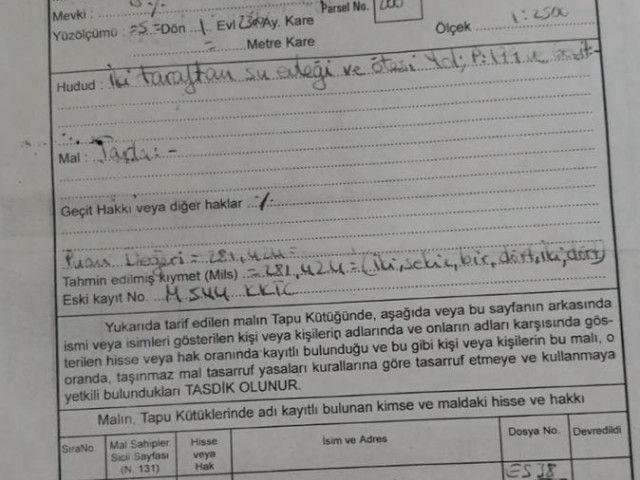 Mevki : ./.
Parsel No. 200
Yüzölçümü : =5.= Dön 1 Evl 2300 Ay. Kare
Ölçek 1:2500
= Metre Kare
Hudud : İki taraftan su eteği ve ötesi Yol;
Mal : Tarla:-
Geçit Hakkı veya diğer haklar ./.
Puan Değeri = 281,424=
Tahmin edilmiş kıymet (Mils) =281,424=(İki,sekiz,bir,dört,iki,dört)
Eski kayıt No. M.544 KKTC
Yukarıda tarif edilen malın Tapu Kütüğünde, aşağıda veya bu sayfanın arkasında
ismi veya isimleri gösterilen kişi veya kişilerin adlarında ve onların adları karşısında gös-
terilen hisse veya hak oranında kayıtlı bulunduğu ve bu gibi kişi veya kişilerin bu malı, o
oranda, taşınmaz mal tasarruf yasaları kurallarına göre tasarruf etmeye ve kullanmaya
yetkili bulundukları TASDİK OLUNUR.
Malın, Tapu Kütüklerinde adı kayıtlı bulunan kimse ve maldaki hisse ve hakkı
SıraNo. Mal Sahipler Sicil Sayfası (N 131) Hisse veya Hak İsim ve Adres Dosya No. Devredildi
ES 38